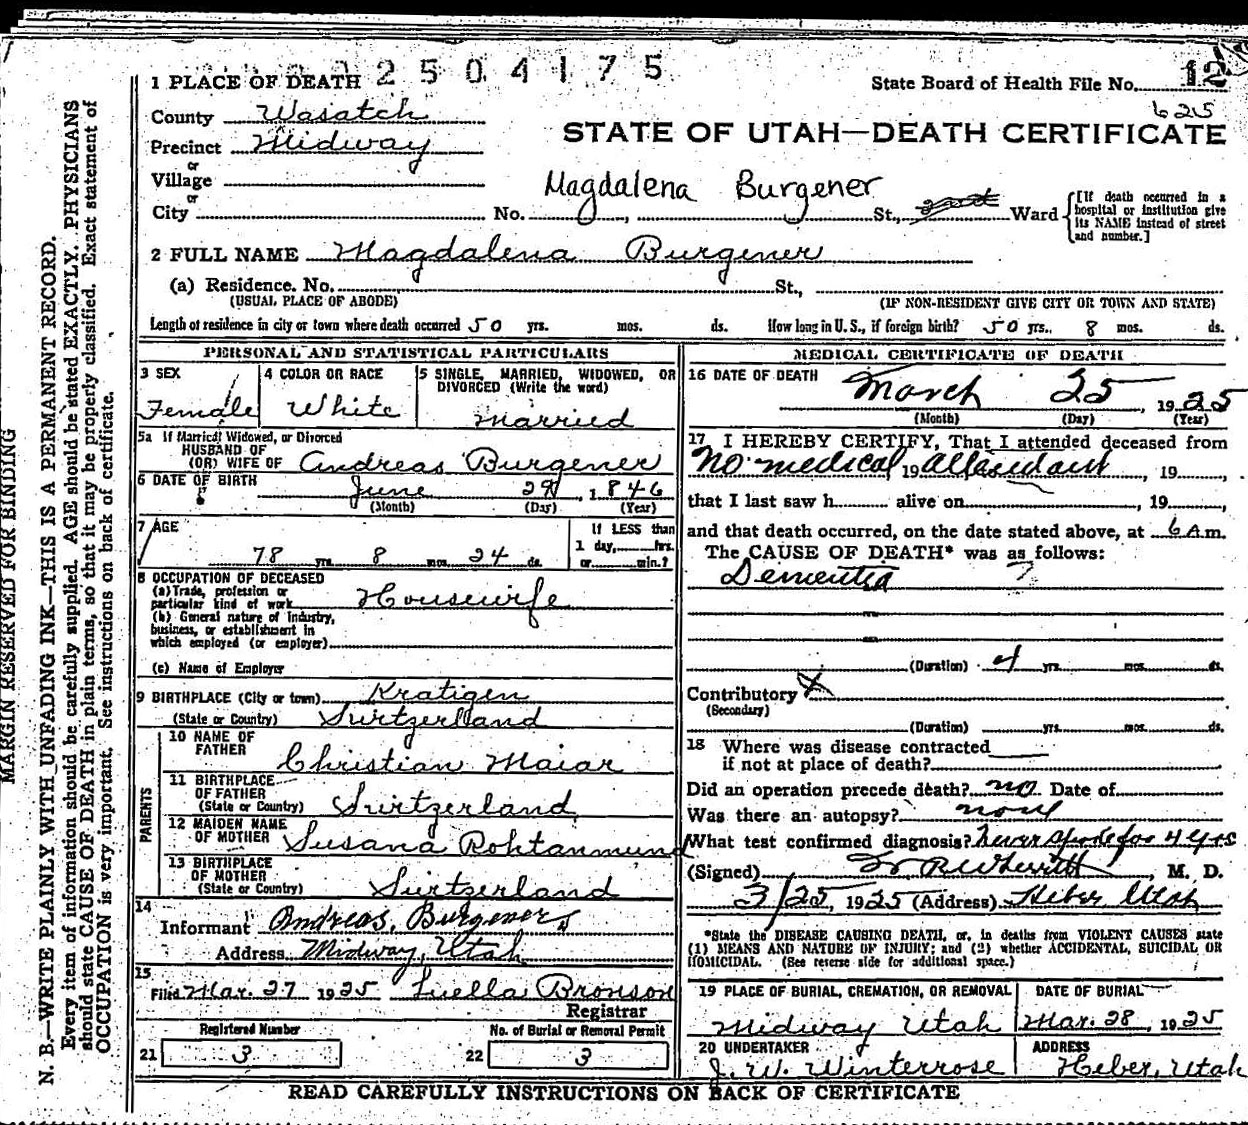 2504175
1 PLACE OF DEATH
State Board of Health File No. 12
625
County Wasatch
STATE OF UTAH—DEATH CERTIFICATE
Precinct Midway
or
Village
or
Magdalena Burgener
City No. St., Ward
[If death occurred in a hospital or institution give its NAME instead of street and number.]
2 FULL NAME Magdalena Burgener
(a) Residence. No. St.,
(USUAL PLACE OF ABODE) (IF NON-RESIDENT GIVE CITY OR TOWN AND STATE)
Length of residence in city or town where death occurred 50 yrs. mos. ds. How long in U. S., if foreign birth? 50 yrs. 8 mos. ds.
PERSONAL AND STATISTICAL PARTICULARS
3 SEX
Female
4 COLOR OR RACE
White
5 SINGLE, MARRIED, WIDOWED, OR DIVORCED (Write the word)
Married
5a If Married, Widowed, or Divorced
HUSBAND OF
(OR) WIFE OF Andreas Burgener
6 DATE OF BIRTH June 29, 1846
(Month) (Day) (Year)
7 AGE
78 yrs. 8 mos. 24 ds.
If LESS than
1 day, hrs.
or min.?
8 OCCUPATION OF DECEASED
(a) Trade, profession or
particular kind of work Housewife
(b) General nature of industry,
business, or establishment in
which employed (or employer)
(c) Name of Employer
9 BIRTHPLACE (City or town) Kratigen
(State or Country) Switzerland
PARENTS
10 NAME OF
FATHER Christian Maiar
11 BIRTHPLACE
OF FATHER
(State or Country) Switzerland
12 MAIDEN NAME
OF MOTHER Susana Rohtanmund
13 BIRTHPLACE
OF MOTHER
(State or Country) Switzerland
14
Informant Andreas Burgener
Address Midway, Utah
15
Filed Mar. 27 1925 Luella Bronson
Registrar
Registered Number No. of Burial or Removal Permit
21 3 22 3
MEDICAL CERTIFICATE OF DEATH
16 DATE OF DEATH
March 25, 1925
(Month) (Day) (Year)
17 I HEREBY CERTIFY, That I attended deceased from
No medical 19 attendant, 19
that I last saw h alive on , 19
and that death occurred, on the date stated above, at 6 A m.
The CAUSE OF DEATH* was as follows:
Dementia ?
(Duration) 4 yrs. mos. ds.
Contributory
(Secondary)
(Duration) yrs. mos. ds.
18 Where was disease contracted
if not at place of death?
Did an operation precede death? no Date of
Was there an autopsy? none
What test confirmed diagnosis? never spoke for 4 yrs
(Signed) , M. D.
3/25, 1925 (Address) Heber Utah
*State the DISEASE CAUSING DEATH, or, in deaths from VIOLENT CAUSES state
(1) MEANS AND NATURE OF INJURY; and (2) whether ACCIDENTAL, SUICIDAL OR
HOMICIDAL. (See reverse side for additional space.)
19 PLACE OF BURIAL, CREMATION, OR REMOVAL
Midway Utah
DATE OF BURIAL
Mar. 28, 1925
20 UNDERTAKER
J. W. Winterrose
ADDRESS
Heber, Utah
READ CAREFULLY INSTRUCTIONS ON BACK OF CERTIFICATE
MARGIN RESERVED FOR BINDING
N. B.—WRITE PLAINLY WITH UNFADING INK—THIS IS A PERMANENT RECORD.
Every item of information should be carefully supplied. AGE should be stated EXACTLY. PHYSICIANS
should state CAUSE OF DEATH in plain terms, so that it may be properly classified. Exact statement of
OCCUPATION is very important. See instructions on back of certificate.